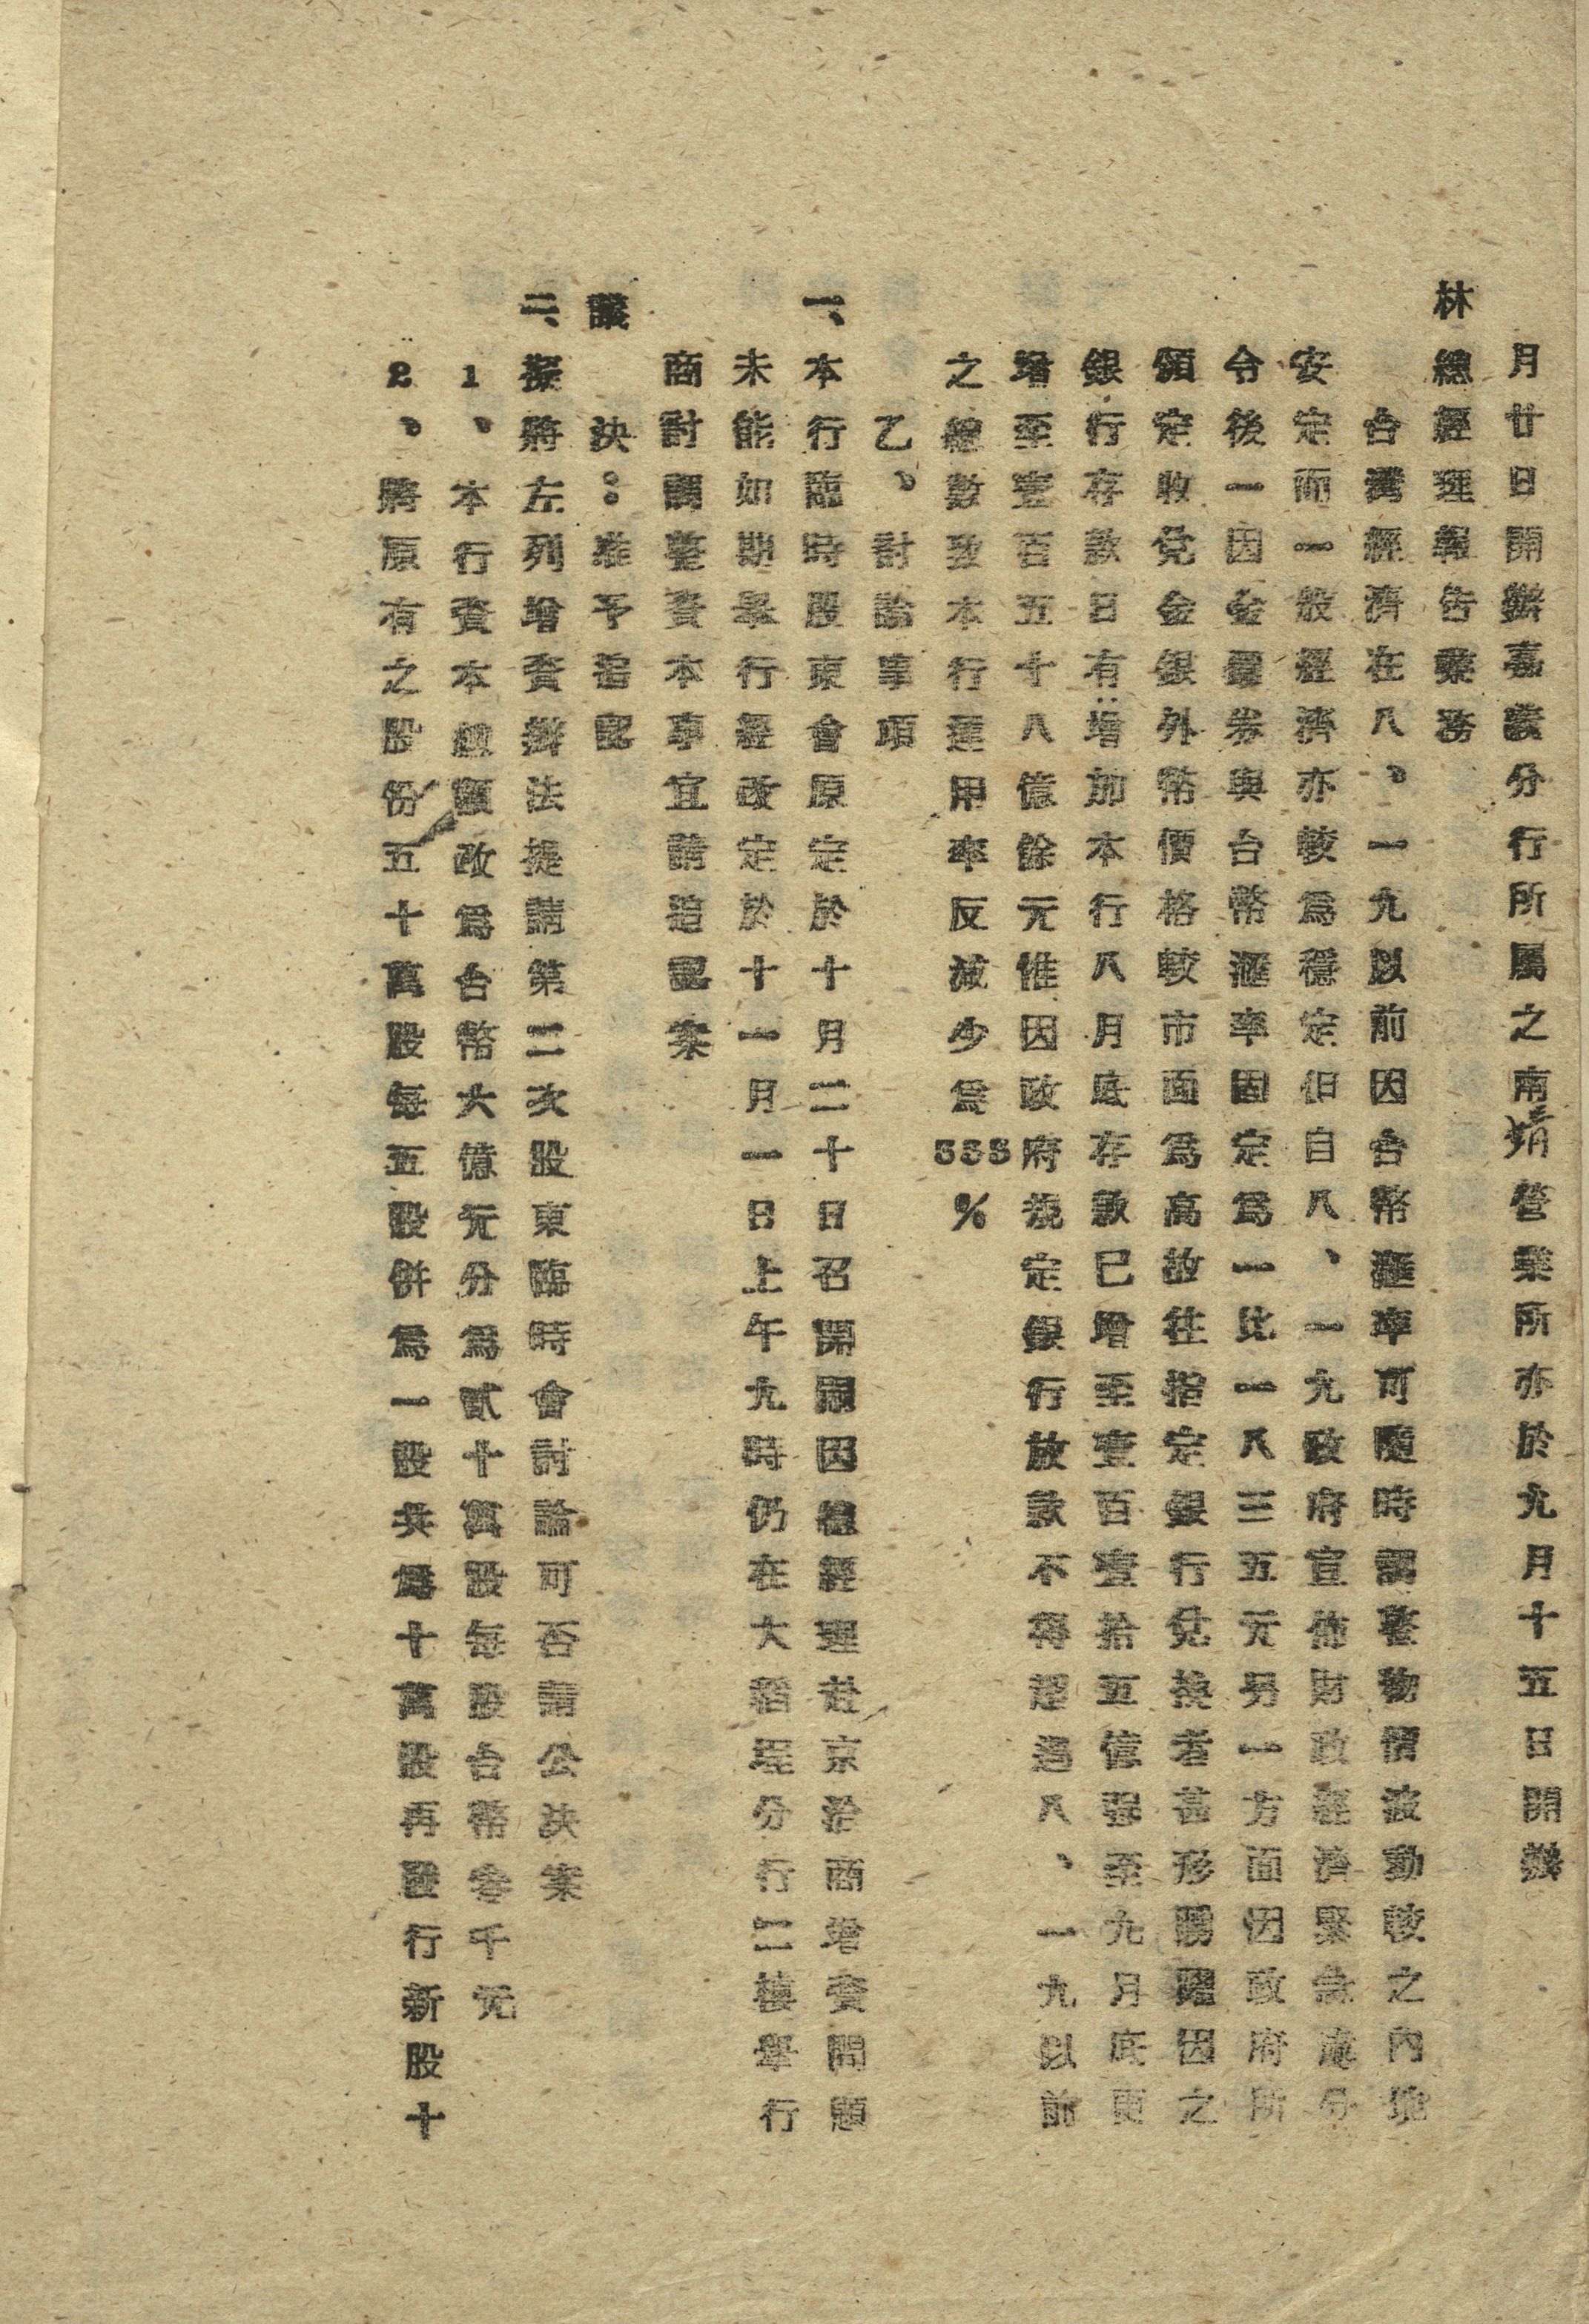 月廿日開辦嘉義分行所屬之南靖營業所亦於九月十五日開幕
林總經理報告業務
台灣經濟在八、一九以前因台幣滙率可隨時調整物價波動較之內地
安定而一般經濟亦較爲穩定但自八、一九政府宣佈財政經濟緊急處分
令後一因金圓券與台幣滙率固定爲一比一八三五元另一方面因政府所
頒定收兌金銀外幣價格較市面爲高故往指定銀行兌換者甚形踴躍因之
銀行存款日有增加本行八月底存款已增至壹百壹拾五億强至九月底更
增至壹百五十八億餘元惟因政府規定銀行放款不得超過八、一九以前
之總數致本行運用率反減少爲
%
乙、討論事項
一、本行臨時股東會原定於十月二十日召開嗣因總經理赴京洽商增資問題
未能如期舉行經改定於十一月一日上午九時仍在大稻埕分行二樓舉行
商討調整資本事宜請追認案
議決：准予追認
二、擬將左列增資辦法提請第二次股東臨時會討論可否請公決案
1、本行資本總額改爲台幣六億元分爲貳十萬股每股台幣叁千元
2、將原有之股份五十萬股每五股併爲一股共爲十萬股再發行新股十